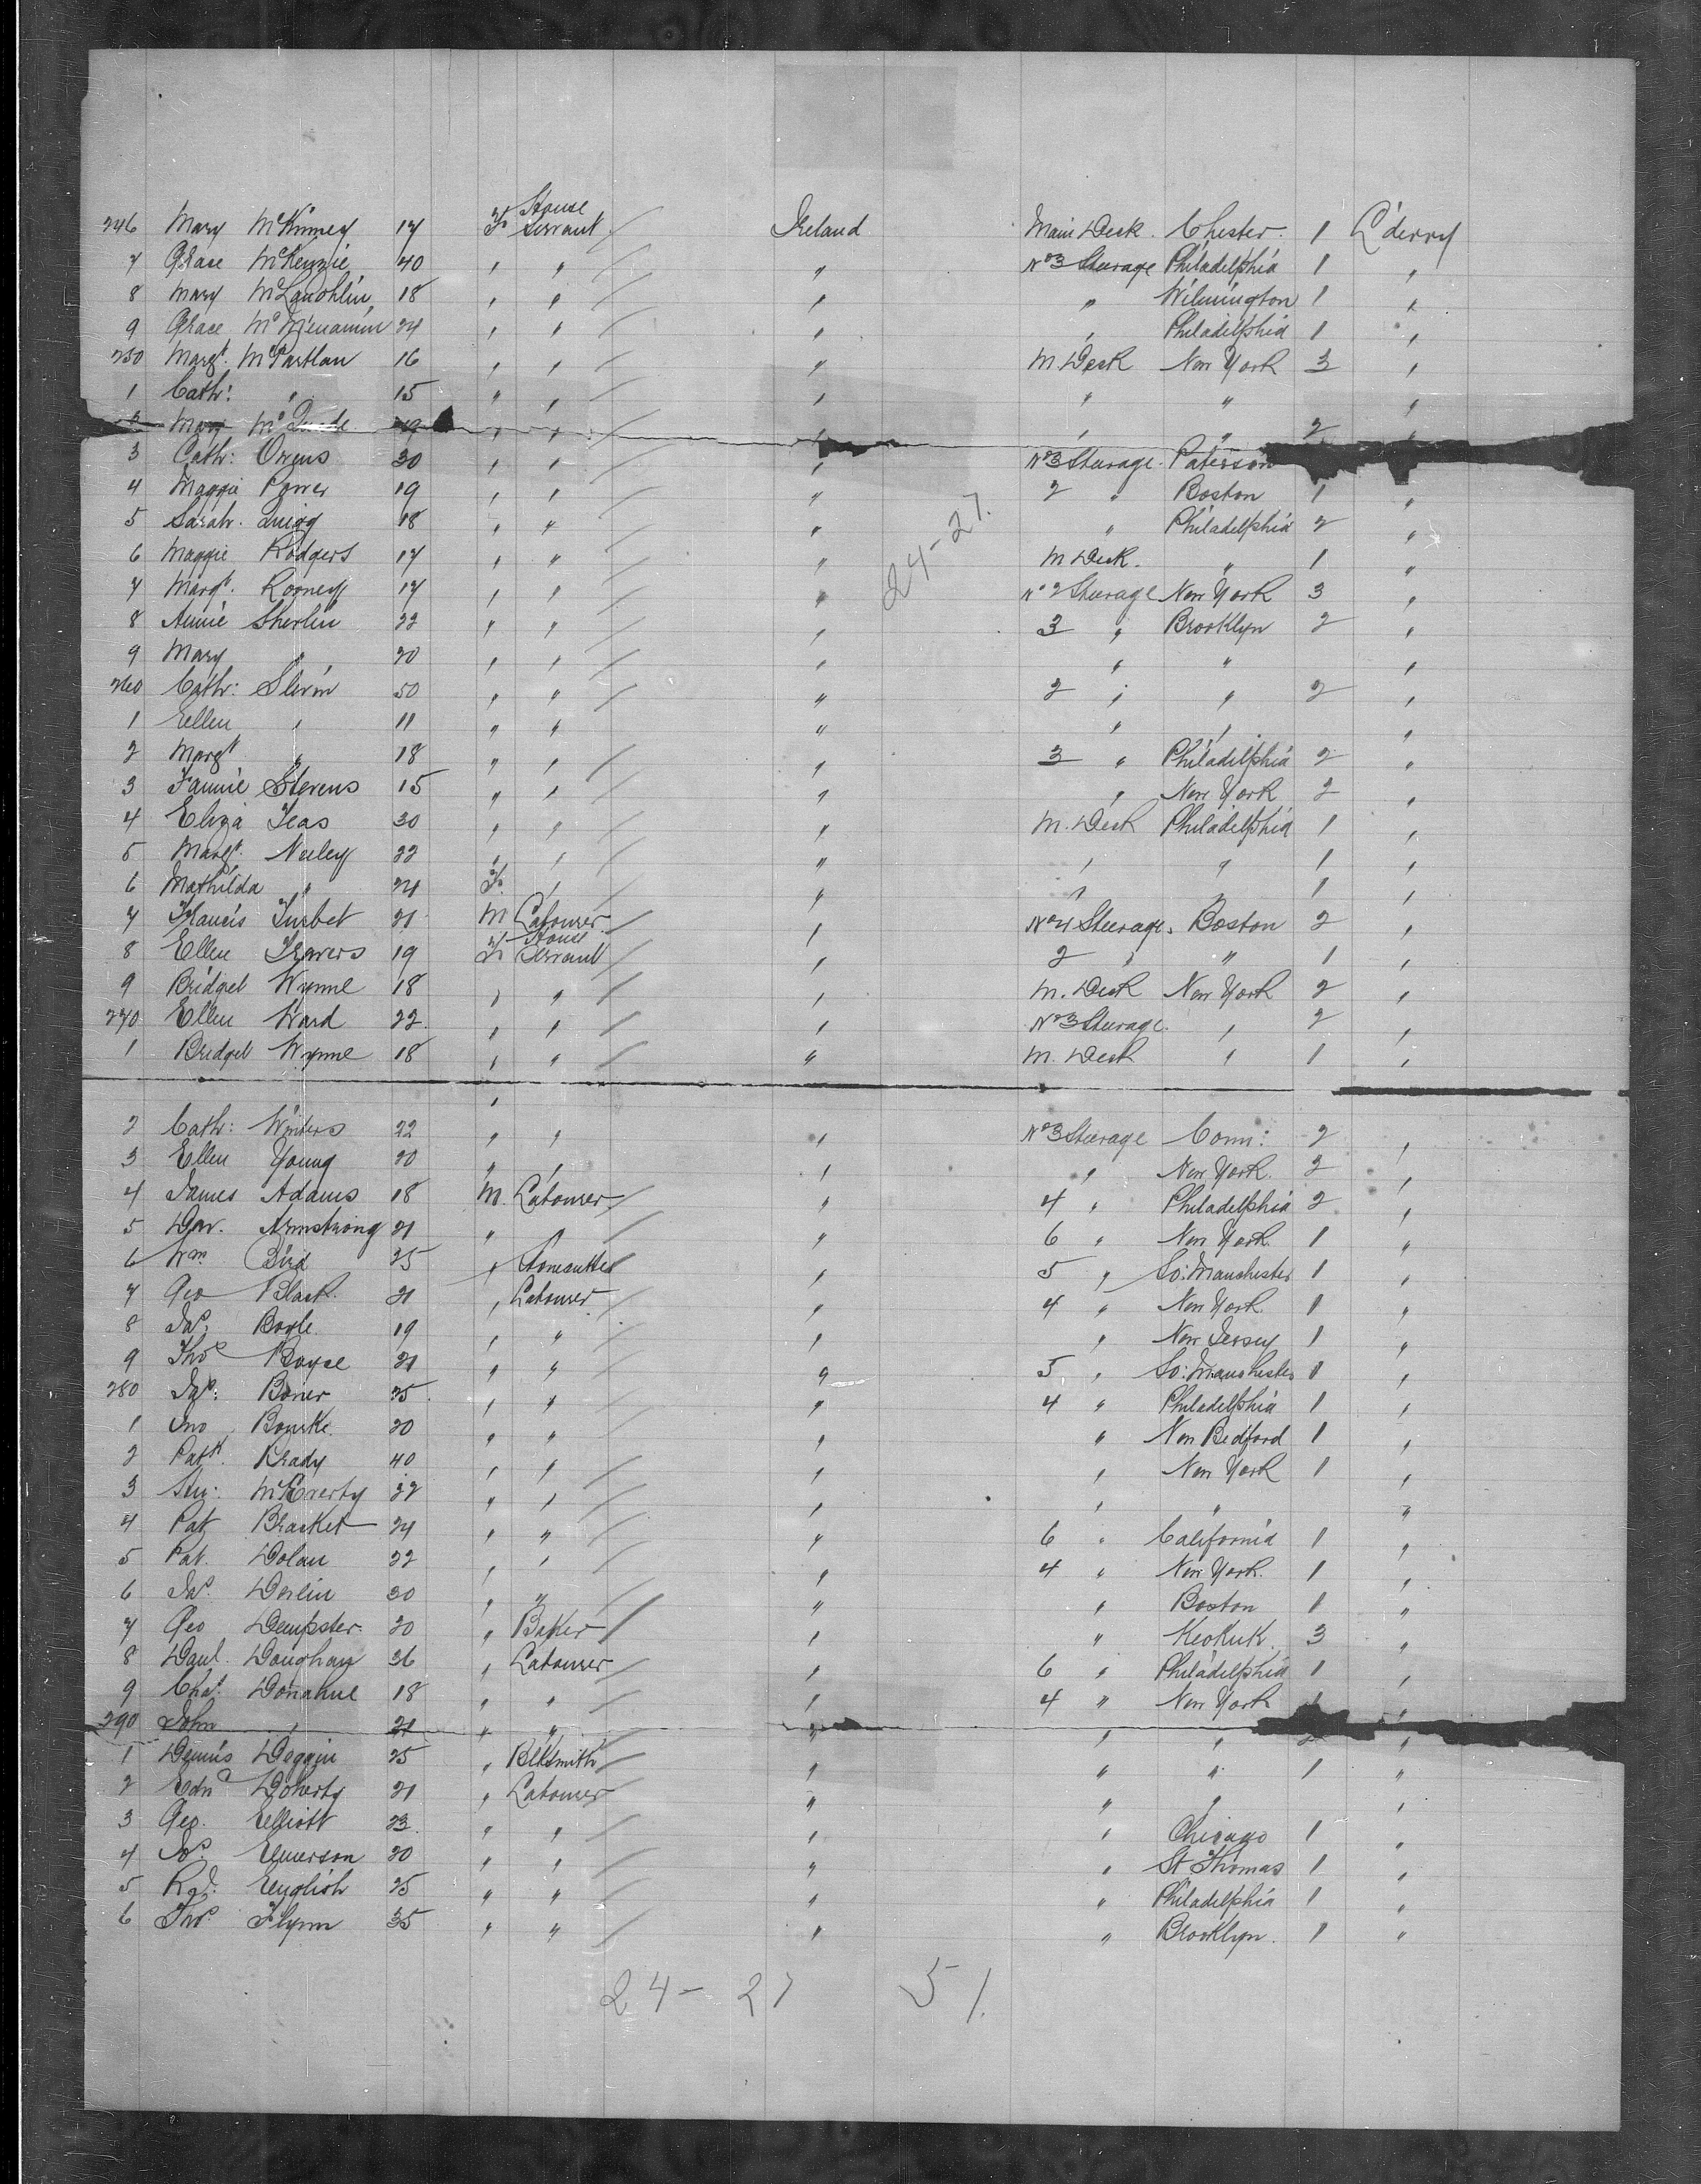 246 Mary McKinney 17 F House Servant / Ireland Main Deck. Chester 1 L'derry
7 Grace McKenzie 40 " " / " No 3 Steerage Philadelphia 1 "
8 Mary McLaughlin 18 " " / " " Wilmington 1 "
9 Grace McMenamin 24 " " / " " Philadelphia 1 "
250 Margt. McPartlan 16 " " / " M. Deck New York 3 "
1 Cath: " 15 " " / " " " "
2 Mary McQuade 19 " " / " " " 2 "
3 Cath: Owens 30 " " / " No 3 Steerage. Paterson
4 Maggie Power 19 " " / " 2 " Boston 1 "
5 Sarah. Quigg 18 " " / " " Philadelphia 2 "
6 Maggie Rodgers 17 " " / " M Deck. " 1 "
7 Margt. Rooney 17 " " / " No 2 Steerage New York 3 "
24-27.
8 Annie Sherlin 22 " " / " 3 " Brooklyn 2 "
9 Mary " 20 " " / " " " "
260 Cath: Slevin 50 " " / " 2 " " 2 "
1 Ellen " 11 " " " " " "
2 Margt " 18 " " / " 3 " Philadelphia 2 "
3 Fannie Stevens 15 " " / " " New York 2 "
4 Eliza Teas 30 " " / " M. Deck Philadelphia 1 "
5 Margt. Neeley 22 " " / " " " 1 "
6 Mathilda " 24 F. " / " " 1 "
7 Francis Turbet 21 M Labourer / " No 4 Steerage. Boston 2 "
8 Ellen Travers 19 F House Servant / " 2 " " 1 "
9 Bridget Wynne 18 " " / " M. Deck New York 2 "
270 Ellen Ward 22. " " / " No 3 Steerage. " 2 "
1 Bridget Wynne 18 " " / " M. Deck " 1 "
2 Cath: Winters 22 " " " No 3 Steerage Conn: 2 "
3 Ellen Young 20 " " " " New York. 2 "
4 James Adams 18 M. Labourer / " 4 " Philadelphia 2 "
5 Dav. Armstrong 21 " " / " 6 " New York 1 "
6 Wm. Bird 25 " Stonecutter / " 5 " So: Manchester 1 "
7 Geo Black. 21 " Labourer / " 4 " New York 1 "
8 Jas. Boyle. 19 " " / " " New Jersey 1 "
9 Thos Boyce 21 " " / " 5 " So: Manchester 1 "
280 Jas: Boner 25. " " / " 4 " Philadelphia 1 "
1 Jno Bourke. 20 " " / " " New Bedford 1 "
2 Patk. Brady 40 " " / " " New York 1 "
3 McEverty 22 " " / " " " "
4 Pat Bracket 24 " " / " 6 " California 1 "
5 Pat. Dolan 22 " " / " 4 " New York. 1 "
6 Jas. Devlin 30 " " / " " Boston 1 "
7 Geo Dempster. 20 " Baker / " " Keokuk. 3 "
8 Danl. Doughan 36 " Labourer / " 6 " Philadelphia 1 "
9 Chas. Donahue 18 " " / " 4 " New York 1 "
290 John " 21 " " " " " 2 "
1 Dennis Deggin 25 " Blksmith / " " " 1 "
2 Edwd Doherty 21 " Labourer / " " " "
3 Geo. Elliott 23. " " / " " Chicago 1 "
4 Emerson 20 " " / " " St Thomas 1 "
5 Rd. English 25 " " / " " Philadelphia 1 "
6 Thos. Flynn 35 " " / " " Brooklyn. 1 "
24-27 51.